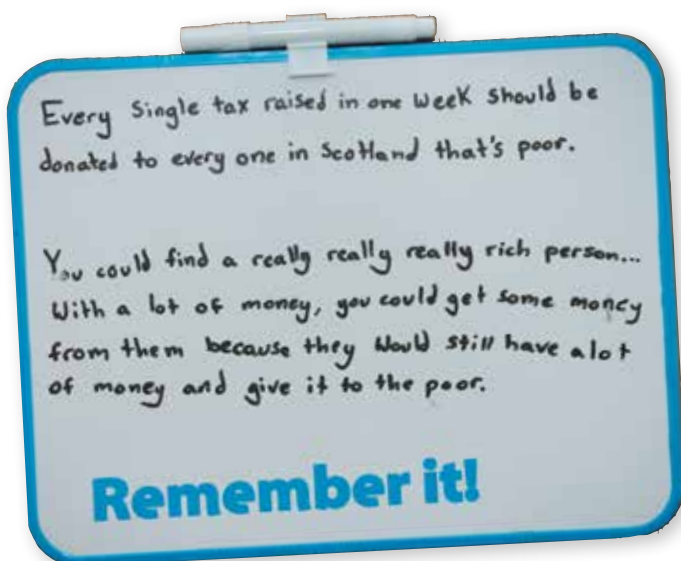 Every Single tax raised in one week should be
donated to every one in Scotland that's poor.
You could find a really really really rich person...
With a lot of money, you could get some money
from them because they would still have a lot
of money and give it to the poor.
Remember it!